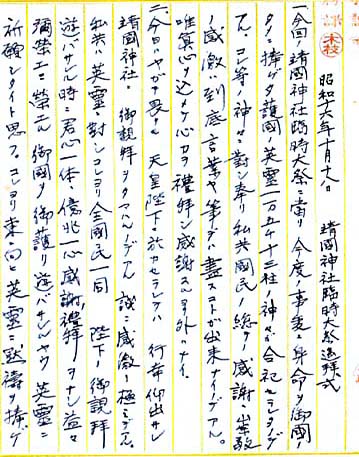 未校
昭和十六年十月十八日
靖國神社臨時大祭遥拝式
一、今回ノ靖國神社臨時大祭ニ當リ今度ノ事変ニ身命ヲ御國ノ
タメニ捧ゲタ護國ノ英靈一万五千十三柱ノ神々ガ合祀セラレタノデ
アル。コレ等ノ神々ニ對シ奉リ私共國民ノ総テノ感謝ト崇敬
ノ感激ハ到底言葉ヤ筆デハ盡スコトガ出来ナイノデアル。
唯真心ヲ込メ心カラ禮拜シ感謝スル外ハナイ。
二、今日ハヤガテ畏クモ 天皇陛下ニ於カセラレテハ 行幸仰出サレ
靖國神社ニ御親拜ヲタマハルノデアル 誠ニ感激ノ極ミデアル。
私共ハ英靈ニ對シコレヨリ全國民一同 陛下ノ御親拜
遊バサルル時ニ君心一体、億兆一心感謝ノ禮拜ヲナシ益々
彌榮エニ榮エル御國ヲ御護リ遊バサレルヤウ 英靈ニ
祈願シタイト思フ。コレヨリ東ニ向ヒ英靈ニ默禱ヲ捧ゲ